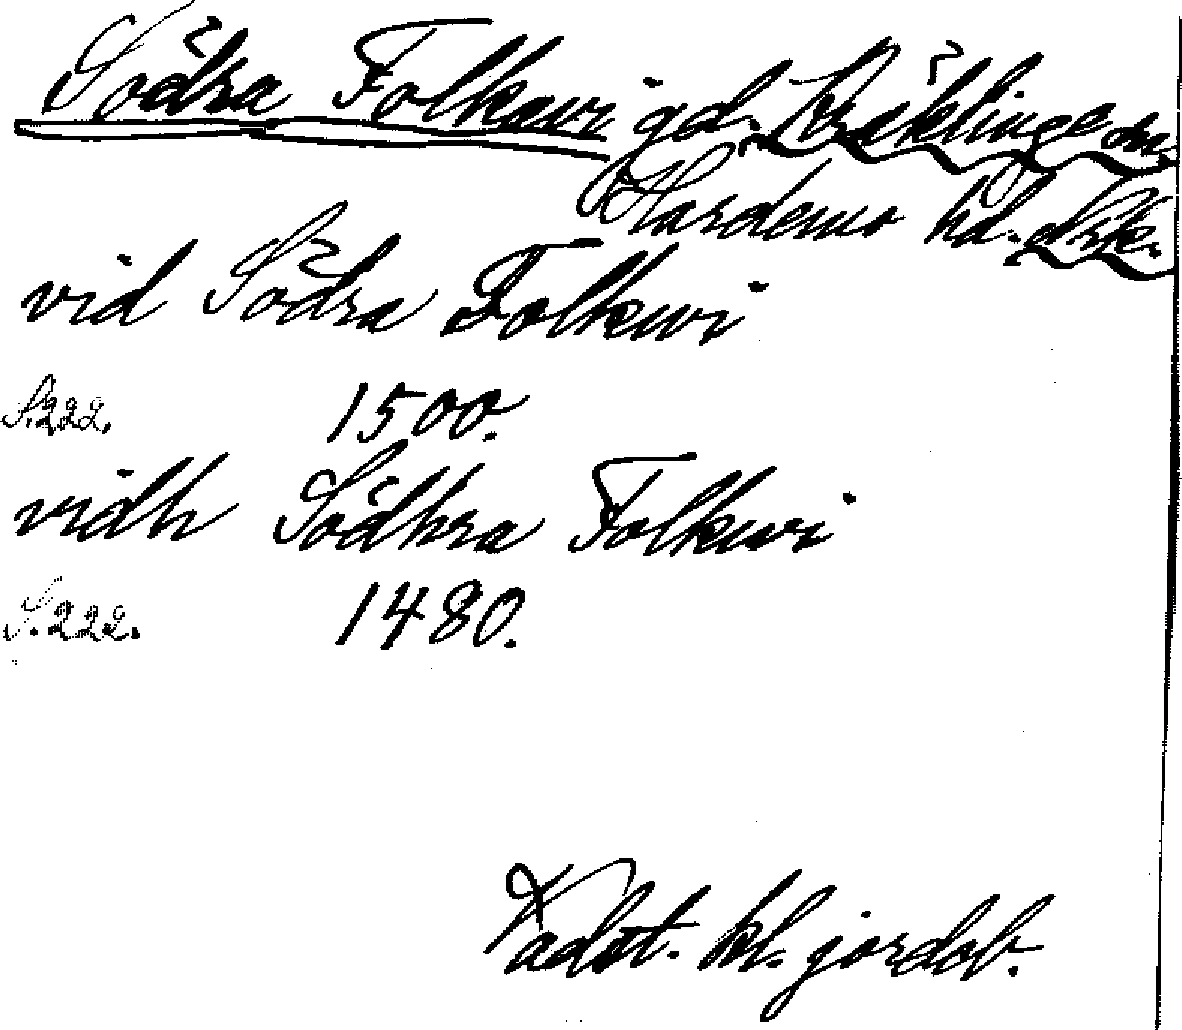 Södra Folkavi gd. Kräklinge sn,
Hardemo hd. Nrk.
vid Södra Folkuvi
S. 222. 1500.
vidh Södhra Folkuvi
S. 222. 1480.
Vadst. kl. jordab.